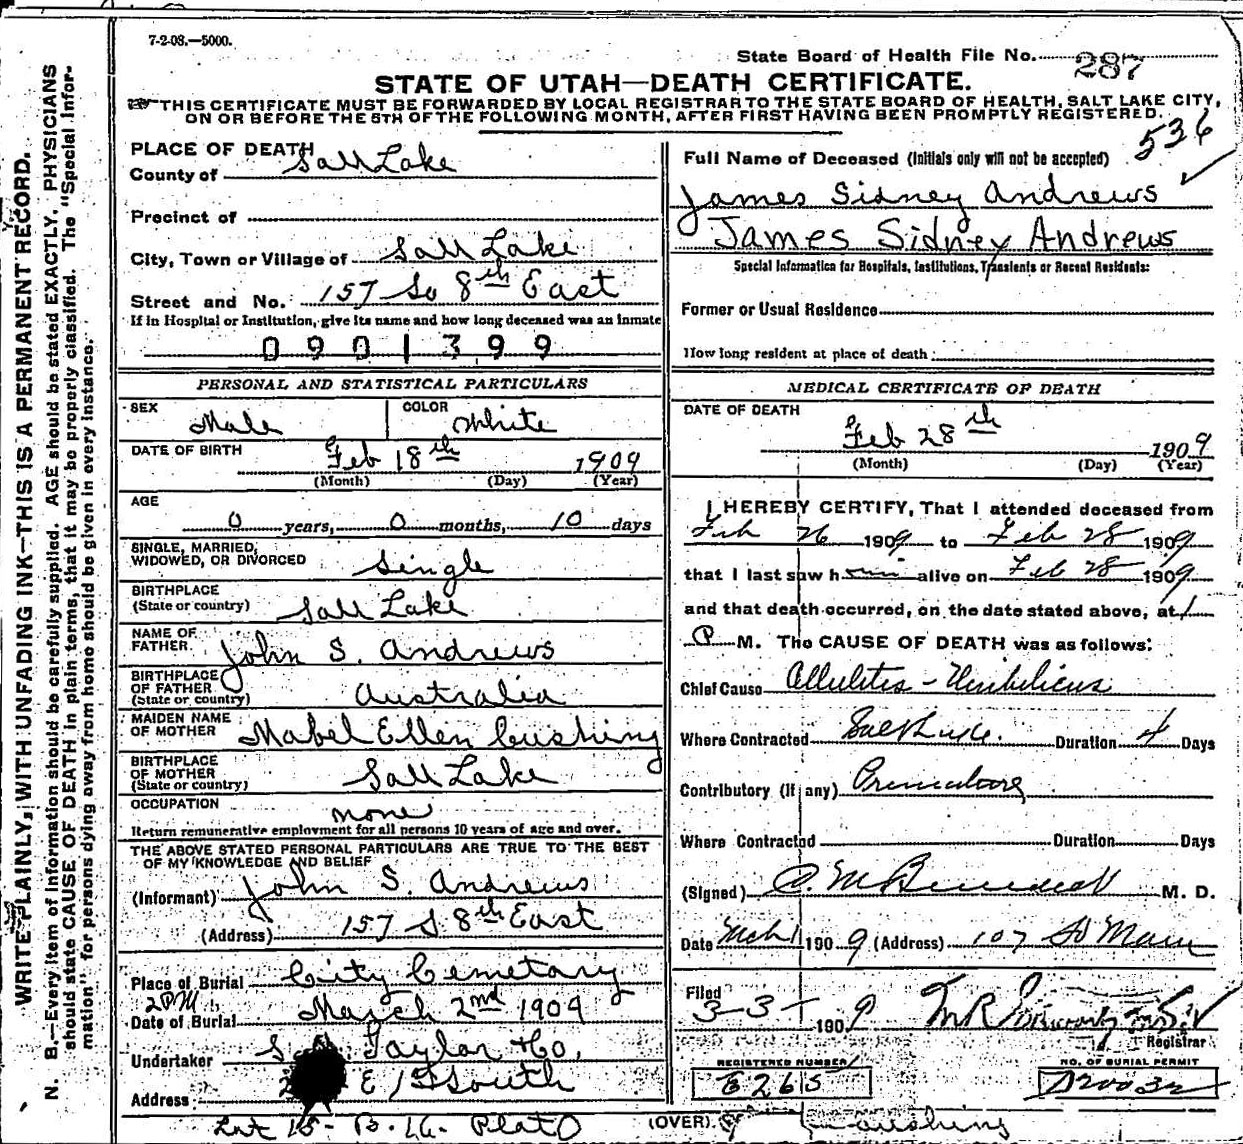 7-2-08.—5000.
State Board of Health File No. 287
STATE OF UTAH—DEATH CERTIFICATE.
THIS CERTIFICATE MUST BE FORWARDED BY LOCAL REGISTRAR TO THE STATE BOARD OF HEALTH, SALT LAKE CITY,
ON OR BEFORE THE 5TH OF THE FOLLOWING MONTH, AFTER FIRST HAVING BEEN PROMPTLY REGISTERED.
536
WRITE PLAINLY, WITH UNFADING INK—THIS IS A PERMANENT RECORD.
N. B.—Every item of Information should be carefully supplied. AGE should be stated EXACTLY. PHYSICIANS
should state CAUSE OF DEATH in plain terms, that it may be properly classified. The "Special Infor-
mation" for persons dying away from home should be given in every instance.
PLACE OF DEATH
County of Salt Lake
Precinct of
City, Town or Village of Salt Lake
Street and No. 157 So 8th East
If in Hospital or Institution, give its name and how long deceased was an inmate
0901399
PERSONAL AND STATISTICAL PARTICULARS
SEX Male COLOR White
DATE OF BIRTH Feb 18th 1909
(Month) (Day) (Year)
AGE
0 years, 0 months, 10 days
SINGLE, MARRIED,
WIDOWED, OR DIVORCED Single
BIRTHPLACE
(State or country) Salt Lake
NAME OF
FATHER John S. Andrews
BIRTHPLACE
OF FATHER
(State or country) Australia
MAIDEN NAME
OF MOTHER Mabel Ellen Cushing
BIRTHPLACE
OF MOTHER
(State or country) Salt Lake
OCCUPATION none
Return remunerative employment for all persons 10 years of age and over.
THE ABOVE STATED PERSONAL PARTICULARS ARE TRUE TO THE BEST
OF MY KNOWLEDGE AND BELIEF
(Informant) John S. Andrews
(Address) 157 S 8th East
Place of Burial City Cemetary
2 PM
Date of Burial March 2nd 1909
Undertaker S Taylor & Co,
Address 2 E 1st South
Lot 15- B. 16. Plat O
Full Name of Deceased (Initials only will not be accepted)
James Sidney Andrews
James Sidney Andrews
Special Information for Hospitals, Institutions, Transients or Recent Residents:
Former or Usual Residence
How long resident at place of death
MEDICAL CERTIFICATE OF DEATH
DATE OF DEATH
Feb 28th 1909
(Month) (Day) (Year)
I HEREBY CERTIFY, That I attended deceased from
Feb 26 1909 to Feb 28 1909
that I last saw him alive on Feb 28 1909
and that death occurred, on the date stated above, at 1
P M. The CAUSE OF DEATH was as follows:
Chief Cause Cellulitis - Umbilicus
Where Contracted Salt Lake. Duration 4 Days
Contributory (If any)
Where Contracted Duration Days
(Signed) M. D.
Date Mch 1 1909 (Address) 107 So Main
Filed
3-3- 1909
Registrar
REGISTERED NUMBER NO. OF BURIAL PERMIT
E265
(OVER)